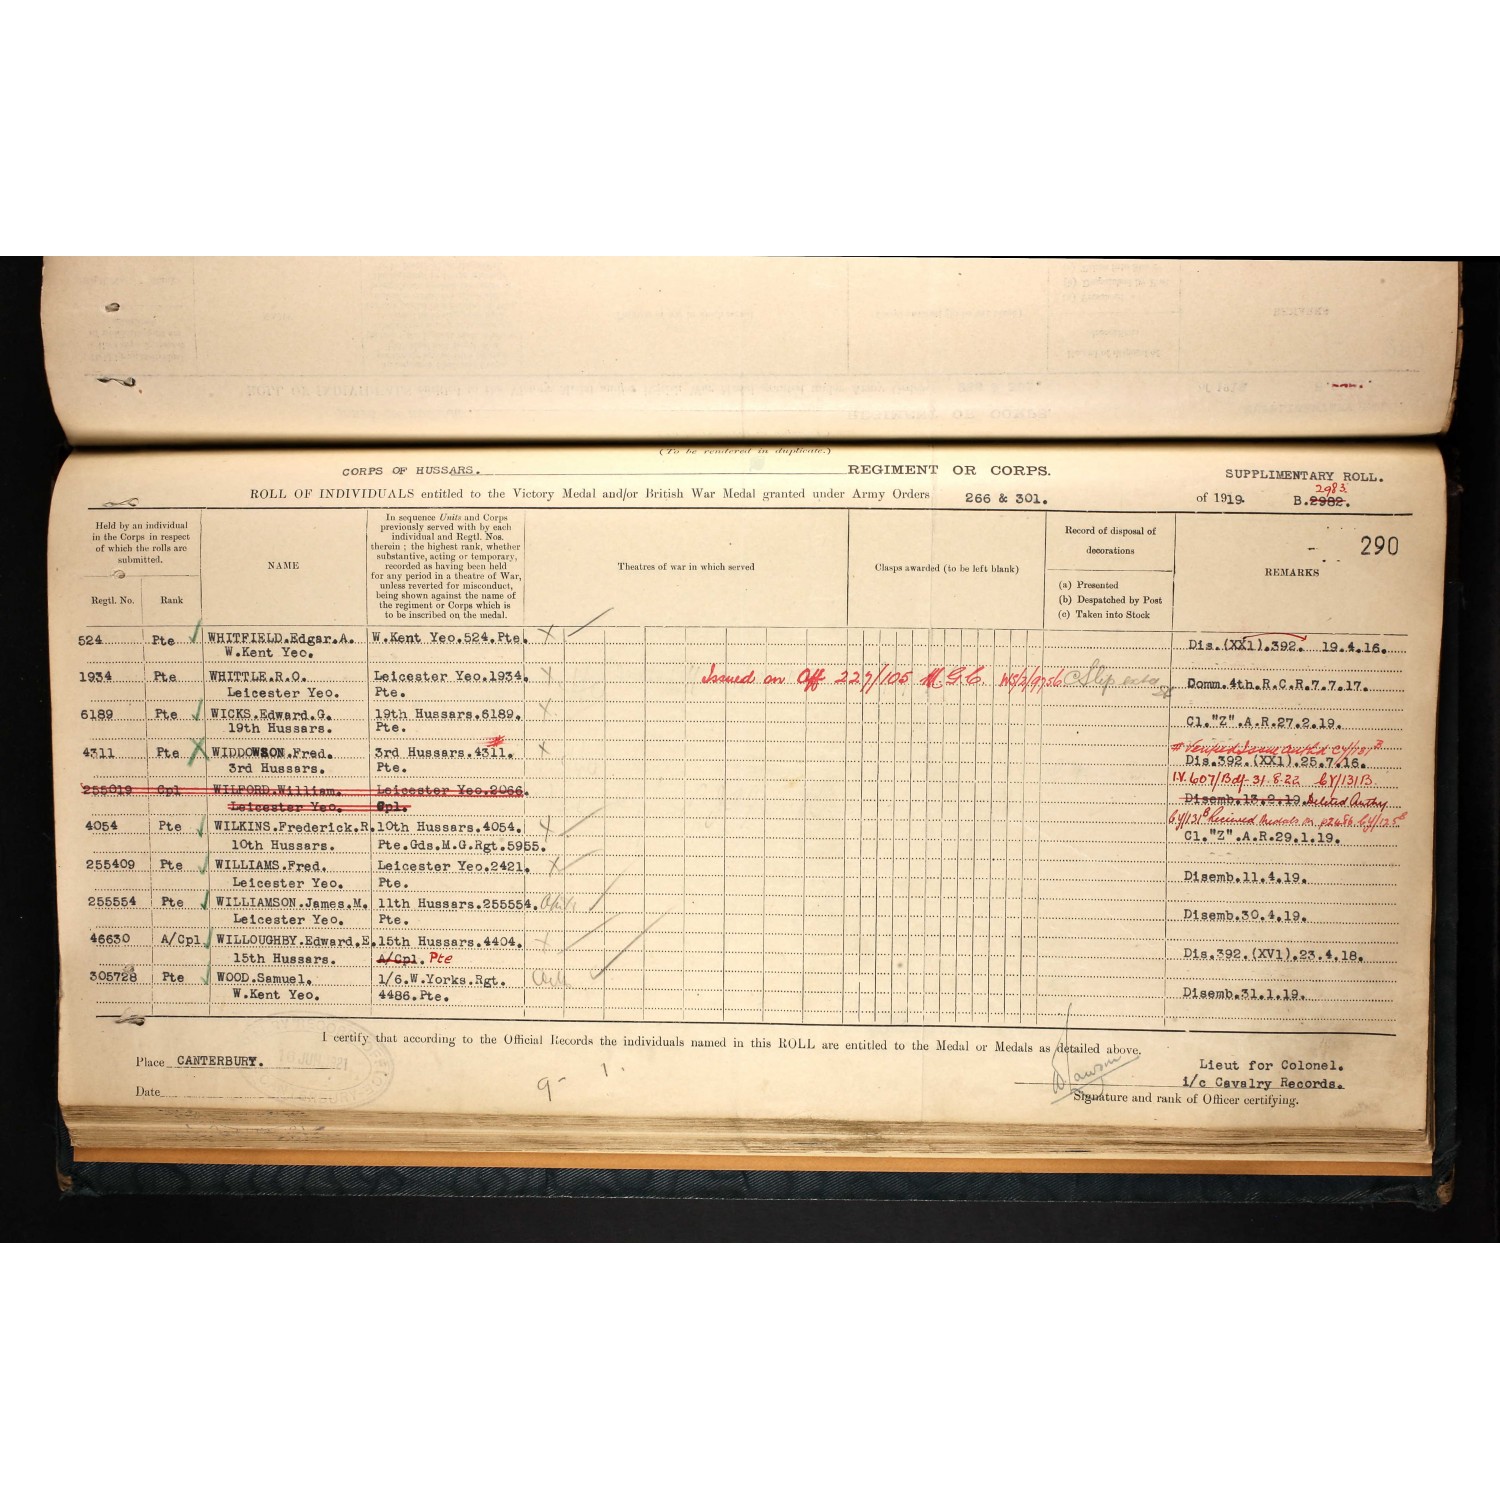 (To be rendered in duplicate.)
CORPS OF HUSSARS. REGIMENT OR CORPS. SUPPLIMENTARY ROLL.
2983.
ROLL OF INDIVIDUALS entitled to the Victory Medal and/or British War Medal granted under Army Orders 266 & 301. of 1919. B.2982.
290
Held by an individual
in the Corps in respect
of which the rolls are
submitted.
Regtl. No. Rank
NAME
In sequence Units and Corps
previously served with by each
individual and Regtl. Nos.
therein; the highest rank, whether
substantive, acting or temporary,
recorded as having been held
for any period in a theatre of War,
unless reverted for misconduct,
being shown against the name of
the regiment or Corps which is
to be inscribed on the medal.
Theatres of war in which served
Clasps awarded (to be left blank)
Record of disposal of
decorations
(a) Presented
(b) Despatched by Post
(c) Taken into Stock
REMARKS
524 Pte WHITFIELD.Edgar.A. W.Kent Yeo.524.Pte. X Dis.(XX1).392. 19.4.16.
W.Kent Yeo.
1934 Pte WHITTLE.R.O. Leicester Yeo.1934. X Issued on Off 227/105 M.G.C. W5/2/9756 Slip Comm.4th.R.C.R.7.7.17.
Leicester Yeo. Pte.
6189 Pte WICKS.Edward.G. 19th Hussars.6189. X Cl."Z".A.R.27.2.19.
19th Hussars. Pte.
4311 Pte WIDDOWSON.Fred. 3rd Hussars.4311. X Dis.392.(XX1).25.7.16.
3rd Hussars. Pte.
I.V. 607/Bdf-31.8.22 6Y/131B
255019 Cpl WILFORD.William. Leicester Yeo.2066.
Leicester Yeo. Cpl. Disemb.13.2.19. Deleted Authy
6Y/131B Received medals on
4054 Pte WILKINS.Frederick.R. 10th Hussars.4054. X Cl."Z".A.R.29.1.19.
10th Hussars. Pte.Gds.M.G.Rgt.5955.
255409 Pte WILLIAMS.Fred. Leicester Yeo.2421. X Disemb.11.4.19.
Leicester Yeo. Pte.
255554 Pte WILLIAMSON.James.M. 11th Hussars.255554. Disemb.30.4.19.
Leicester Yeo. Pte.
46630 A/Cpl WILLOUGHBY.Edward.E. 15th Hussars.4404. X Dis.392.(XV1).23.4.18.
15th Hussars. A/Cpl. Pte
305728 Pte WOOD.Samuel. 1/6.W.Yorks.Rgt. Disemb.31.1.19.
W.Kent Yeo. 4486.Pte.
I certify that according to the Official Records the individuals named in this ROLL are entitled to the Medal or Medals as detailed above.
Place CANTERBURY. Lieut for Colonel.
i/c Cavalry Records.
Date
Signature and rank of Officer certifying.
9- 1.